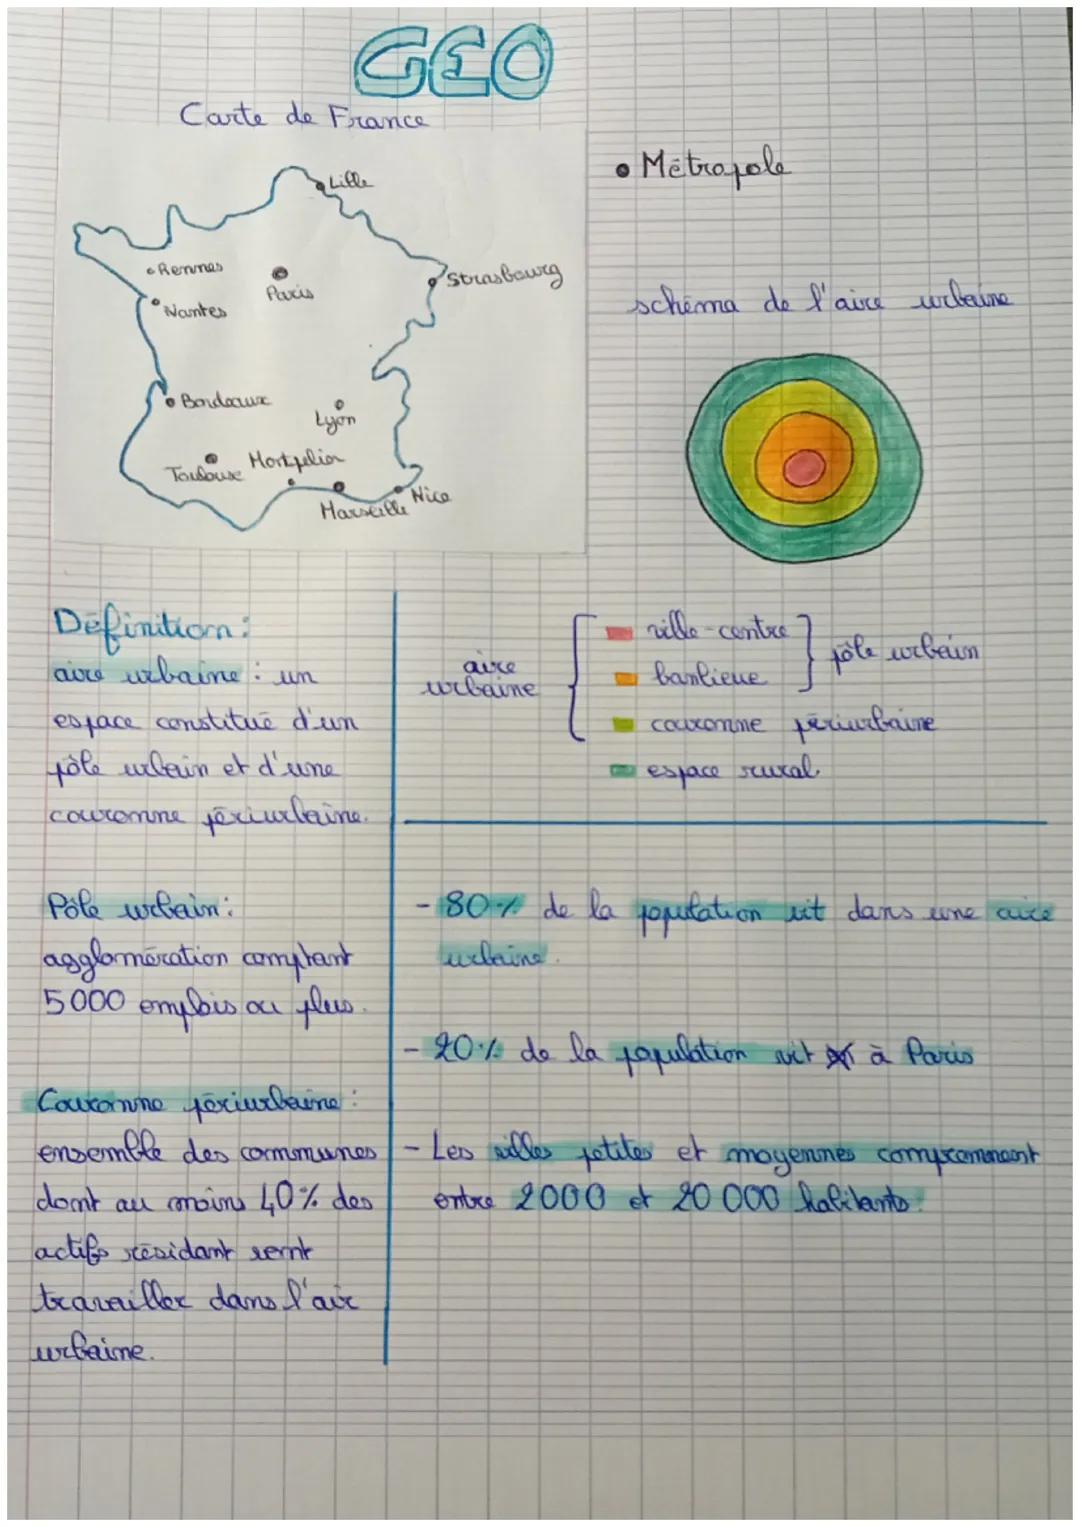 GEO
Carte de France
Lille
Rennes
Paris
Strasbourg
Nantes
Bordeaux
Lyon
Toulouse
Montpelier
Nice
Marseille
• Métropole
schéma de l'aire urbaine
Définition :
aire urbaine : un
espace constitué d'un
pôle urbain et d'une
couronne périurbaine.
aire
urbaine
ville-centre
banlieue
pôle urbain
couronne périurbaine
espace rural
Pôle urbain :
agglomération comptant
5000 emplois ou plus.
Couronne périurbaine :
ensemble des communes
dont au moins 40% des
actifs résidant vont
travailler dans l'air
urbaine.
- 80% de la population vit dans une aire
urbaine.
- 20% de la population vit à Paris
- Les villes petites et moyennes comprennent
entre 2000 et 20 000 habitants.